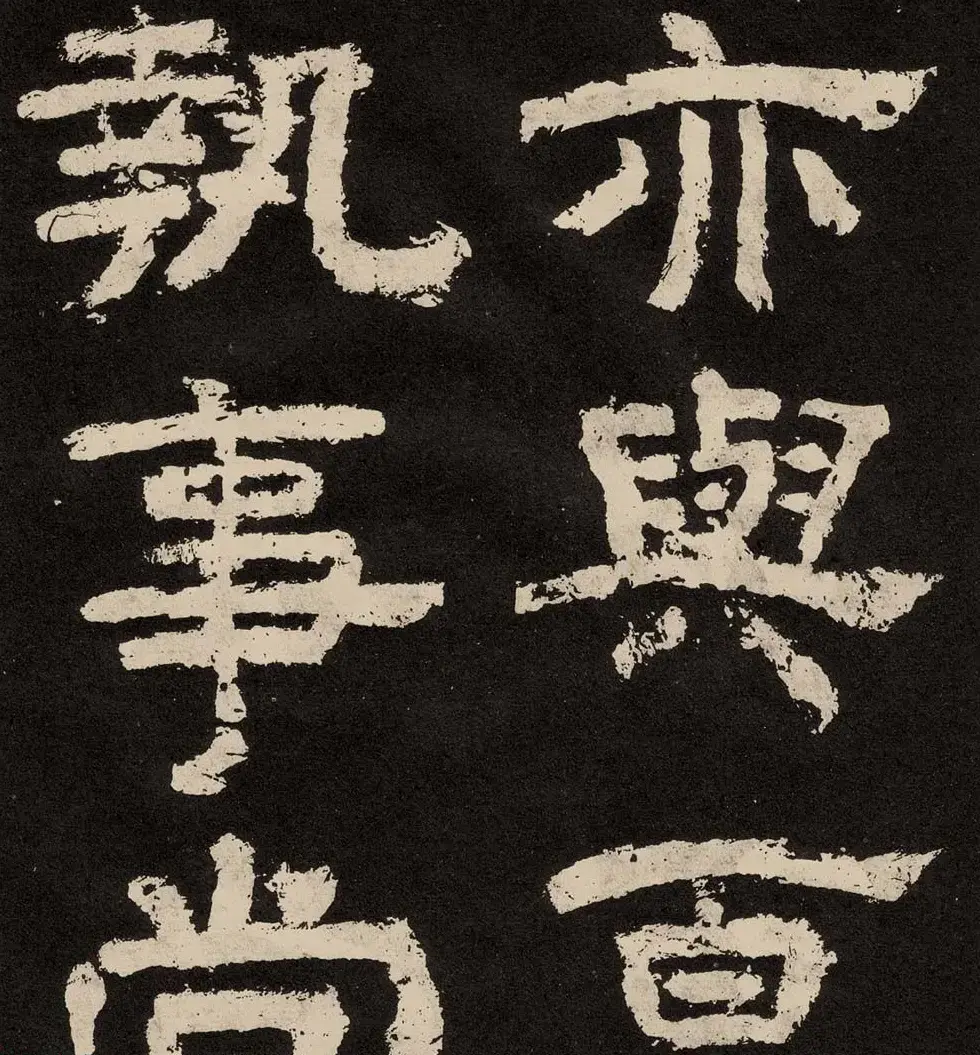 亦與百
執事